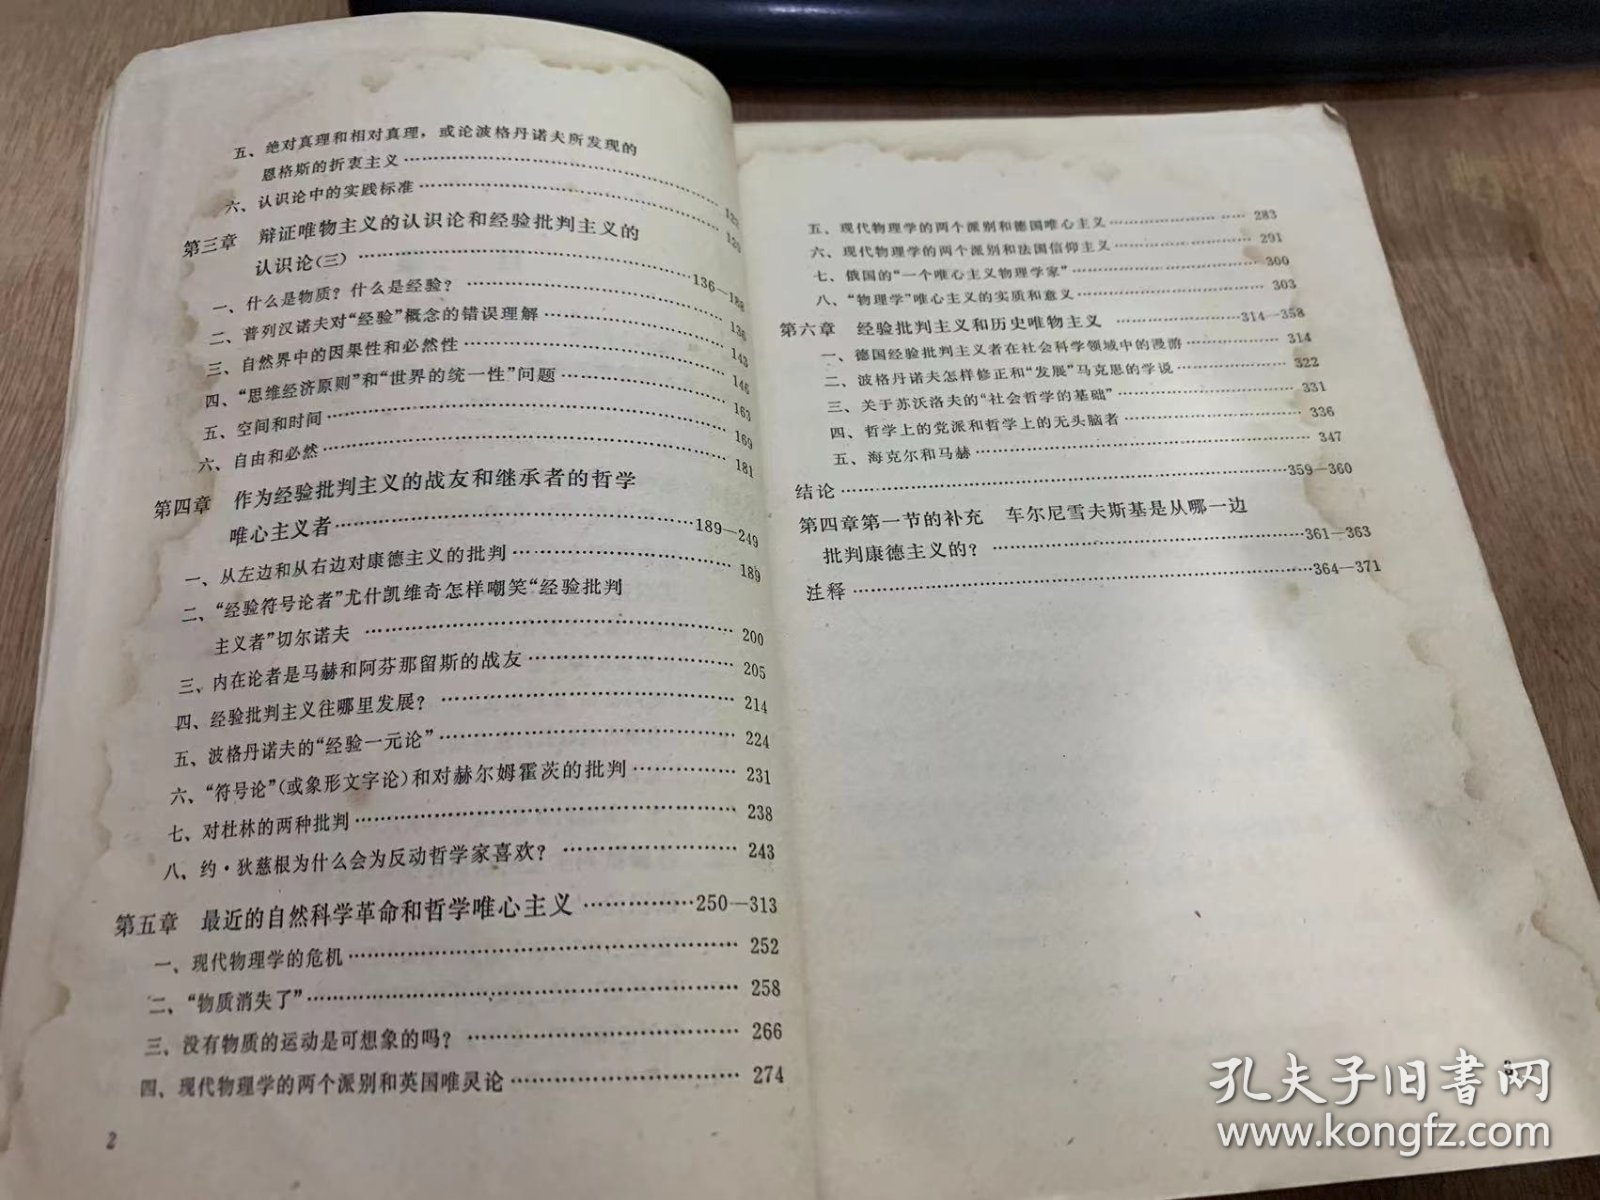 五、绝对真理和相对真理，或论波格丹诺夫所发现的
恩格斯的折衷主义……
六、认识论中的实践标准……
第三章 辩证唯物主义的认识论和经验批判主义的
认识论(三)……136—188
一、什么是物质？什么是经验？……136
二、普列汉诺夫对“经验”概念的错误理解……143
三、自然界中的因果性和必然性……146
四、“思维经济原则”和“世界的统一性”问题……163
五、空间和时间……169
六、自由和必然……181
第四章 作为经验批判主义的战友和继承者的哲学
唯心主义者……189—249
一、从左边和从右边对康德主义的批判……189
二、“经验符号论者”尤什凯维奇怎样嘲笑“经验批判
主义者”切尔诺夫……200
三、内在论者是马赫和阿芬那留斯的战友……205
四、经验批判主义往哪里发展？……214
五、波格丹诺夫的“经验一元论”……224
六、“符号论”(或象形文字论)和对赫尔姆霍茨的批判……231
七、对杜林的两种批判……238
八、约·狄慈根为什么会为反动哲学家喜欢？……243
第五章 最近的自然科学革命和哲学唯心主义……250—313
一、现代物理学的危机……252
二、“物质消失了”……258
三、没有物质的运动是可想象的吗？……266
四、现代物理学的两个派别和英国唯灵论……274
2
五、现代物理学的两个派别和德国唯心主义……283
六、现代物理学的两个派别和法国信仰主义……291
七、俄国的“一个唯心主义物理学家”……300
八、“物理学”唯心主义的实质和意义……303
第六章 经验批判主义和历史唯物主义……314—358
一、德国经验批判主义者在社会科学领域中的漫游……314
二、波格丹诺夫怎样修正和“发展”马克思的学说……322
三、关于苏沃洛夫的“社会哲学的基础”……331
四、哲学上的党派和哲学上的无头脑者……336
五、海克尔和马赫……347
结论……359—360
第四章第一节的补充 车尔尼雪夫斯基是从哪一边
批判康德主义的？……361—363
注释……364—371
孔夫子旧书网
www.kongfz.com